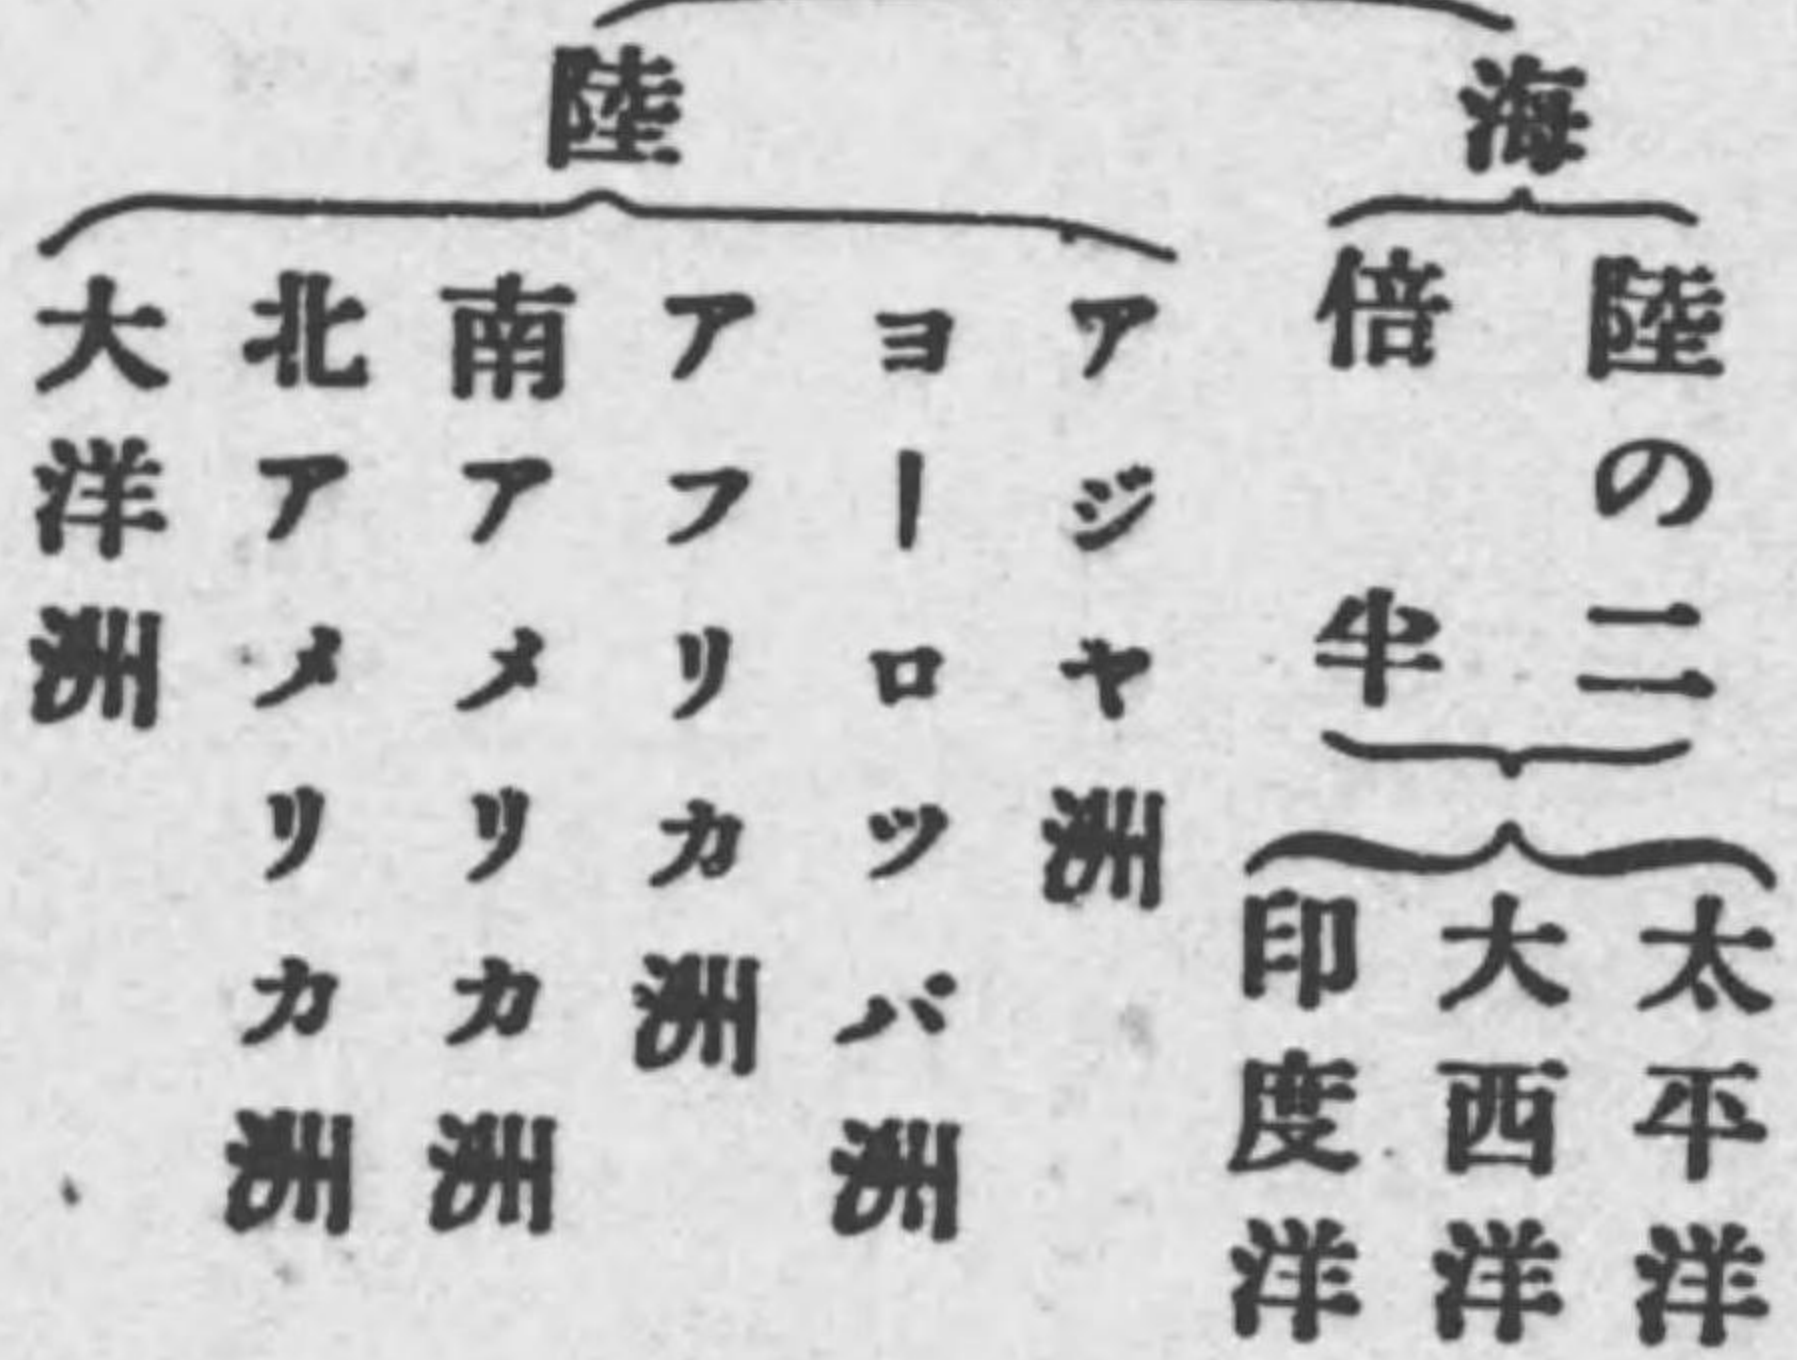 海
陸の二
倍半
太平洋
大西洋
印度洋
陸
アジヤ洲
ヨーロツバ洲
アフリカ洲
南アメリカ洲
北アメリカ洲
大洋洲